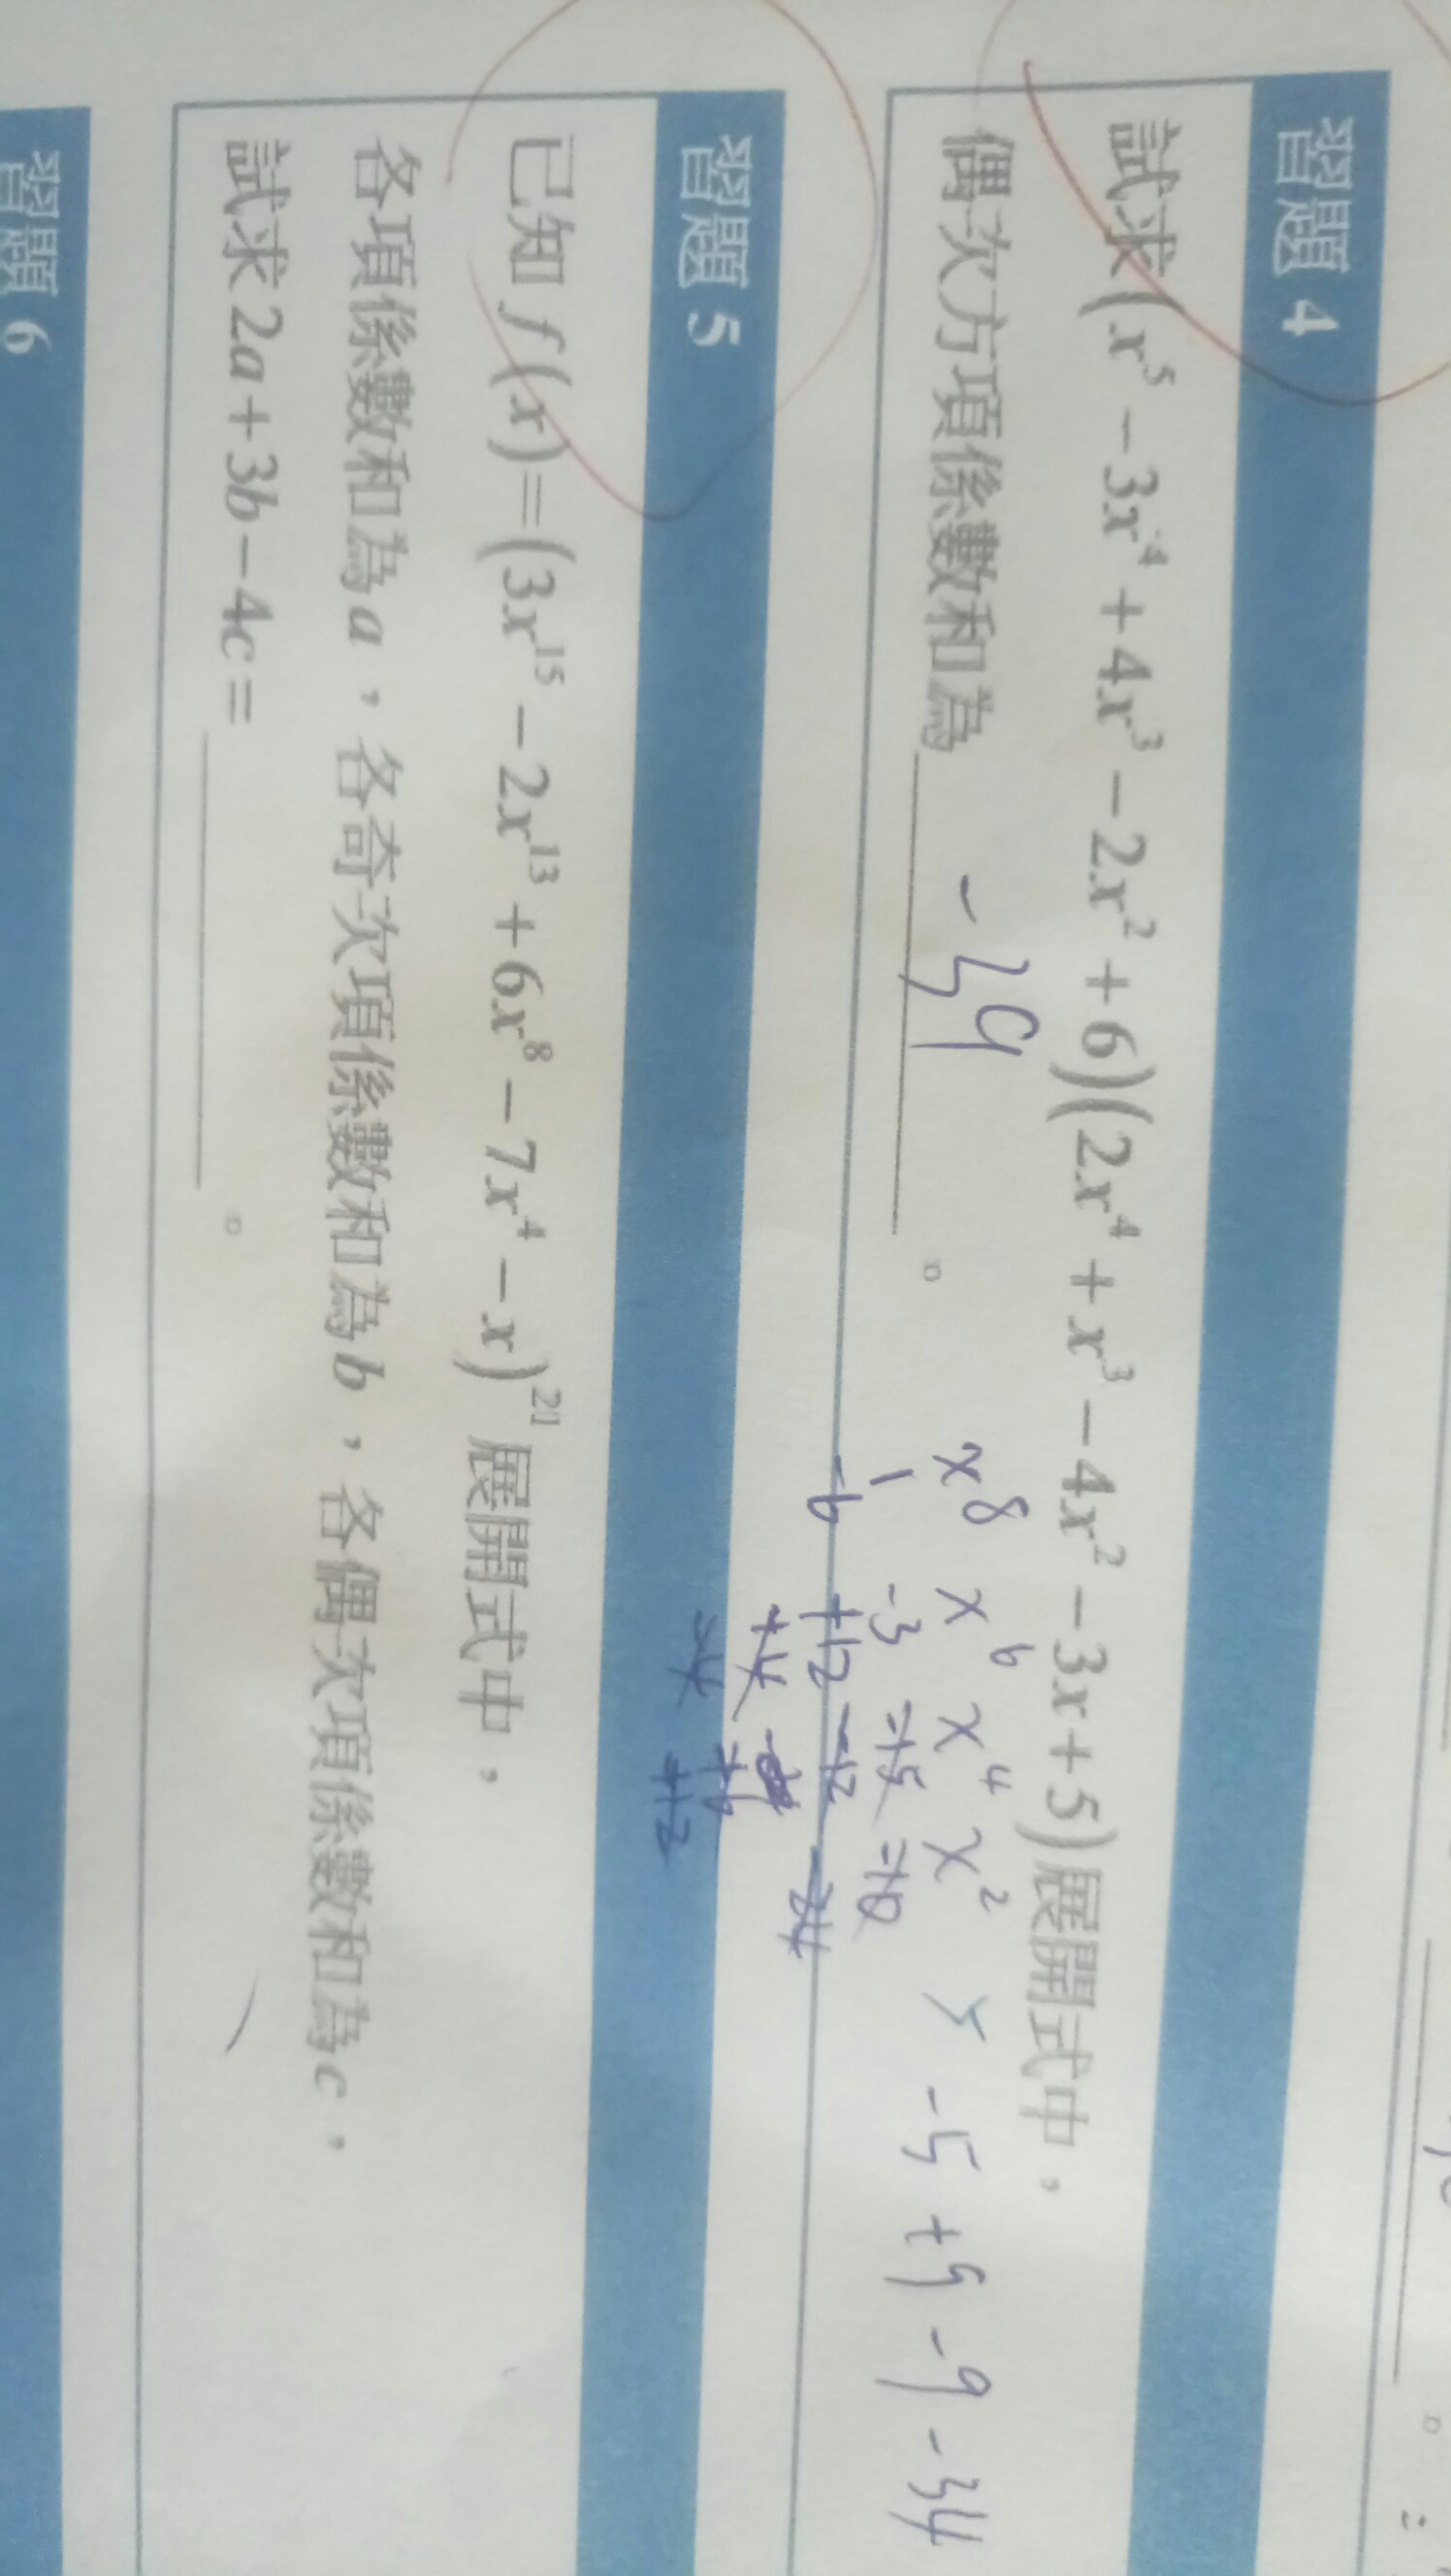 習題 4
試求(x⁵−3x⁴+4x³−2x²+6)(2x⁴+x³−4x²−3x+5)展開式中，
偶次方項係數和為 -39 。
x⁸ x⁶ x⁴ x²
1 -3
-6 +12 -12
-5+9-9-34
習題 5
已知 f(x)=(3x¹⁵−2x¹³+6x⁸−7x⁴−x)²¹展開式中，
各項係數和為a，各奇次項係數和為b，各偶次項係數和為c，
試求2a+3b−4c= 。
習題 6